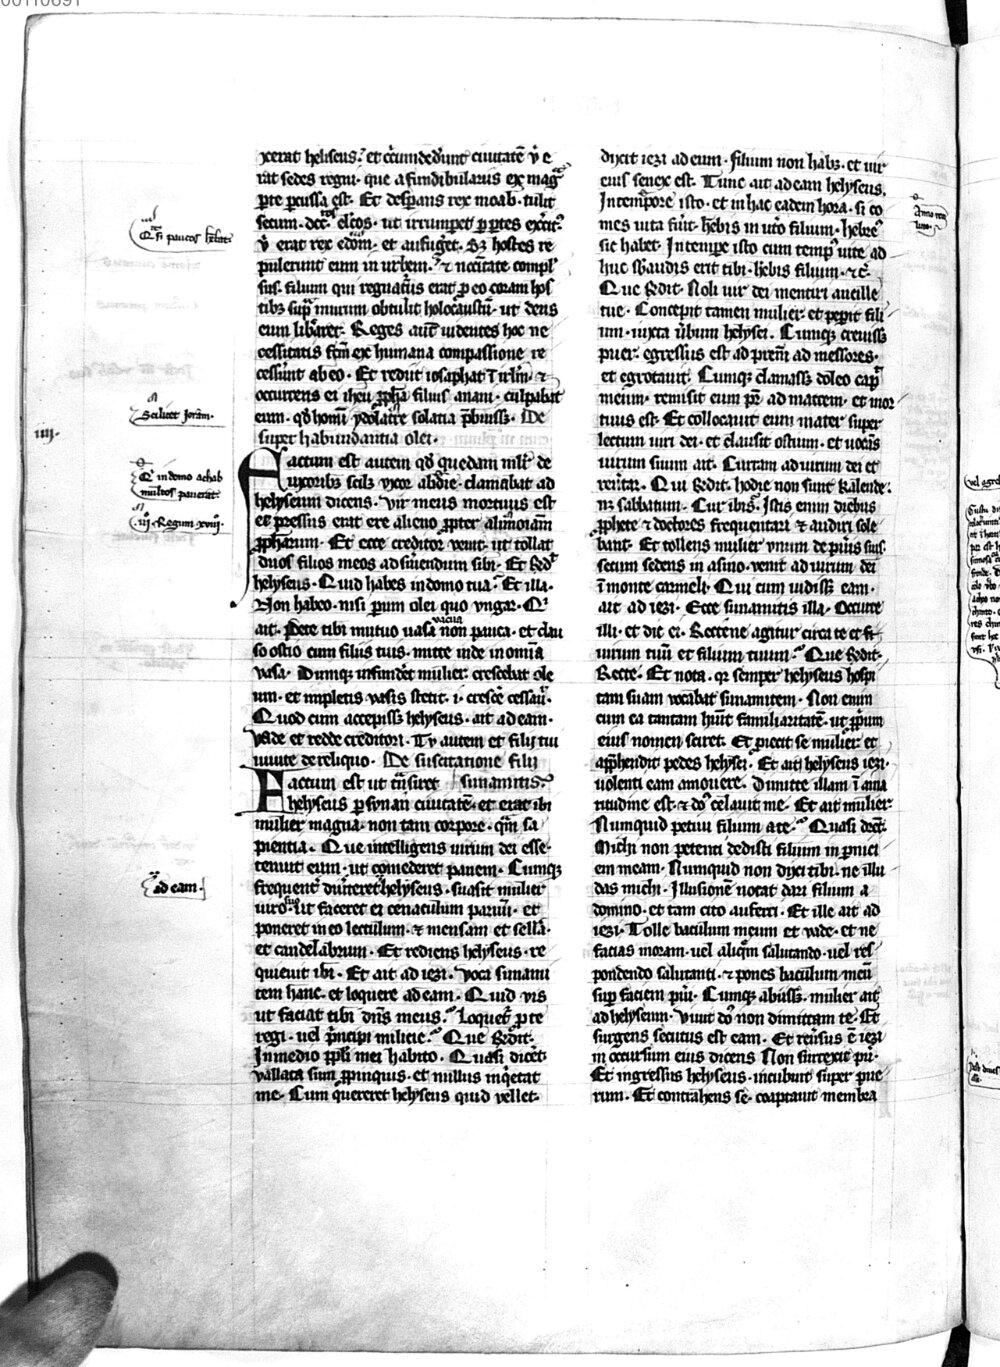 xerat heliseus. et circumdederunt ciuitatem ubi e
rat sedes regni. que a fundibulariis ex magna
parte percussa est. Et desperans rex moab. tulit
secum. dcc. electos. ut irrumperet per partes exercitus
ubi erat rex edom. et aufugeret. Sed hostes re
pulerunt eum in urbem. et necessitate compul
sus. filium qui regnaturus erat pro eo coram hos
tibus supra murum obtulit holocaustum. ut deus
eum liberaret. Reges autem uidentes hoc ne
cessitatis factum ex humana compassione re
cesserunt ab eo. Et rediit iosaphat in ierusalem. et
occurrens ei iheu propheta filius anani. culpabat
eum. quod homini ydolatre solatia prebuisset. De
super habundantia olei.
Factum est autem quod quedam mulier de
uxoribus scilicet uxor abdie. clamabat ad
helyseum dicens. Vir meus mortuus est
et pressus erat ere alieno propter alimoniam
prophetarum. Et ecce creditor uenit. ut tollat
duos filios meos ad seruiendum sibi. Et respondit
helyseus. Quid habes in domo tua? Et illa.
Non habeo. nisi parum olei quo ungar. Cui
ait. Pete tibi mutuo uasa uacua non pauca. et clau
so ostio cum filiis tuis. mitte inde in omnia
uasa. Dumque infunderet mulier. crescebat ole
um. et impletis uasis stetit. i. crescere cessauit.
Quod cum accepisset helyseus. ait ad eam.
Vade et redde creditori. Tu autem et filii tui
uiuite de reliquo. De suscitatione filii
Factum est ut transiret sunamitis.
helyseus per sunan ciuitatem. et erat ibi
mulier magna. non tam corpore. quam sa
pientia. Que intelligens uirum dei esse.
tenuit eum. ut comederet panem. Cumque
frequenter diuerteret helyseus. suasit mulier
uiro suo ut faceret ei cenaculum paruum. et
poneret in eo lectulum. et mensam et sellam.
et candelabrum. Et rediens helyseus. re
quieuit ibi. Et ait ad iezi. Voca sunami
tem hanc. et loquere ad eam. Quid uis
ut faciat tibi dominus meus? Loquetur pro te
regi. uel principi milicie? Que respondit.
In medio populi mei habito. Quasi diceret.
vallata sum propinquis. et nullus inquietat
me. Cum quereret helyseus quid uellet.
dixit iezi ad eum. filium non habet. et uir
eius senex est. Tunc ait ad eam helyseus.
In tempore isto. et in hac eadem hora. si co
mes uita fuerit. habebis in utero filium. hebreus
sic habet. In tempore isto cum tempus uite ad
huc erit tibi. habebis filium. et c.
Que respondit. Noli uir dei mentiri ancille
tue. Concepit tamen mulier. et peperit fili
um. iuxta uerbum helysei. Cumque creuisset
puer. egressus est ad patrem ad messores.
et egrotauit. Cumque clamasset doleo caput
meum. remisit eum pater ad matrem. et mor
tuus est. Et collocauit eum mater super
lectum uiri dei. et clausit ostium. et uocans
uirum suum ait. Curram ad uirum dei et
reuertar. Qui respondit. hodie non sunt kalende.
nec sabbatum. Cur ibis? Istis enim diebus
prophete et doctores frequentari et audiri sole
bant. Et tollens mulier unum de pueris suis.
secum sedens in asino. uenit ad uirum dei
in monte carmeli. Qui cum uidisset eam.
ait ad iezi. Ecce sunamitis illa. Occurre
illi. et dic ei. Rectene agitur circa te et circa
uirum tuum et filium tuum? Que respondit.
Recte. Et nota. quia semper helyseus hospi
tam suam uocabat sunamitem. Non enim
cum ea tantam habuit familiaritatem. ut proprium
eius nomen sciret. Et piecit se mulier et
apprehendit pedes helysei. Et ait helyseus iezi
uolenti eam amouere. Dimitte illam in ama
ritudine est. et dominus celauit me. Et ait mulier
Numquid petiui filium a te? Quasi diceret.
Michi non petenti dedisti filium in pernici
em meam. Numquid non dixi tibi. ne illu
das michi. Illusionem notat dari filium a
domino. et tam cito auferri. Et ille ait ad
iezi. Tolle baculum meum et uade. et ne
facias moram. uel aliquem salutando. uel res
pondendo salutanti. et pones baculum meum
super faciem pueri. Cumque abiisset. mulier ait
ad helyseum. Viuit dominus non dimittam te. Et
surgens secutus est eam. Et reuersus est iezi
in occursum eius dicens Non surrexit puer.
Et ingressus helyseus. incubuit super pue
rum. Et contrahens se. coaptauit membra
Quasi paucos helite
Scilicet Joram.
IIII.
Quia in domo achab
multos pauerat.
.iii. Regum xviii.
ad eam.